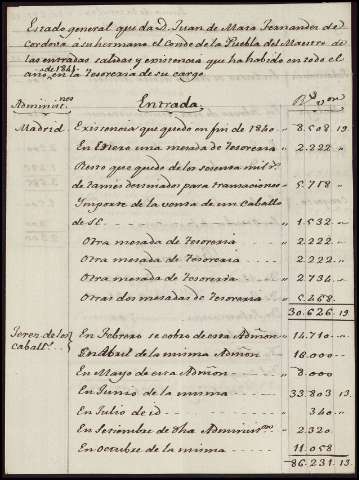 Estado general que da D. Juan de Mata Fernandez de
Cordova á su hermano el Conde de la Puebla del Maestre de
las entradas salidas y existencia que ha habido en todo el
año de 1841 en la Tesoreria de su cargo
Administ.nes Entrada R.s von
Madrid Existencia que quedo en fin de 1840 " 8.508 13
En Enero una mesada de Tesoreria " 2.222 "
Resto que quedo de los sesenta mil r.s
de ramos destinados para transaciones " 5.718 "
Importe de la venta de un Caballo
de S.E. " 1.532 "
Otra mesada de Tesoreria " 2.222 "
Otra mesada de Tesoreria " 2.222 "
Otra mesada de Tesoreria " 2.734 "
Otras dos mesadas de Tesoreria " 5.468 "
30.626 13
Jerez de los
Caball.s
En Febrero se cobro de esta Admon " 14.710 "
En Abril de la misma Admon " 18.000 "
En Mayo de esta Admon " 8.000
En Junio de la misma 33.803 13
En Julio de id " 340 "
En Setiembre de dha Administ.on " 2.320
En Octubre de la misma 11.058
86.231 13